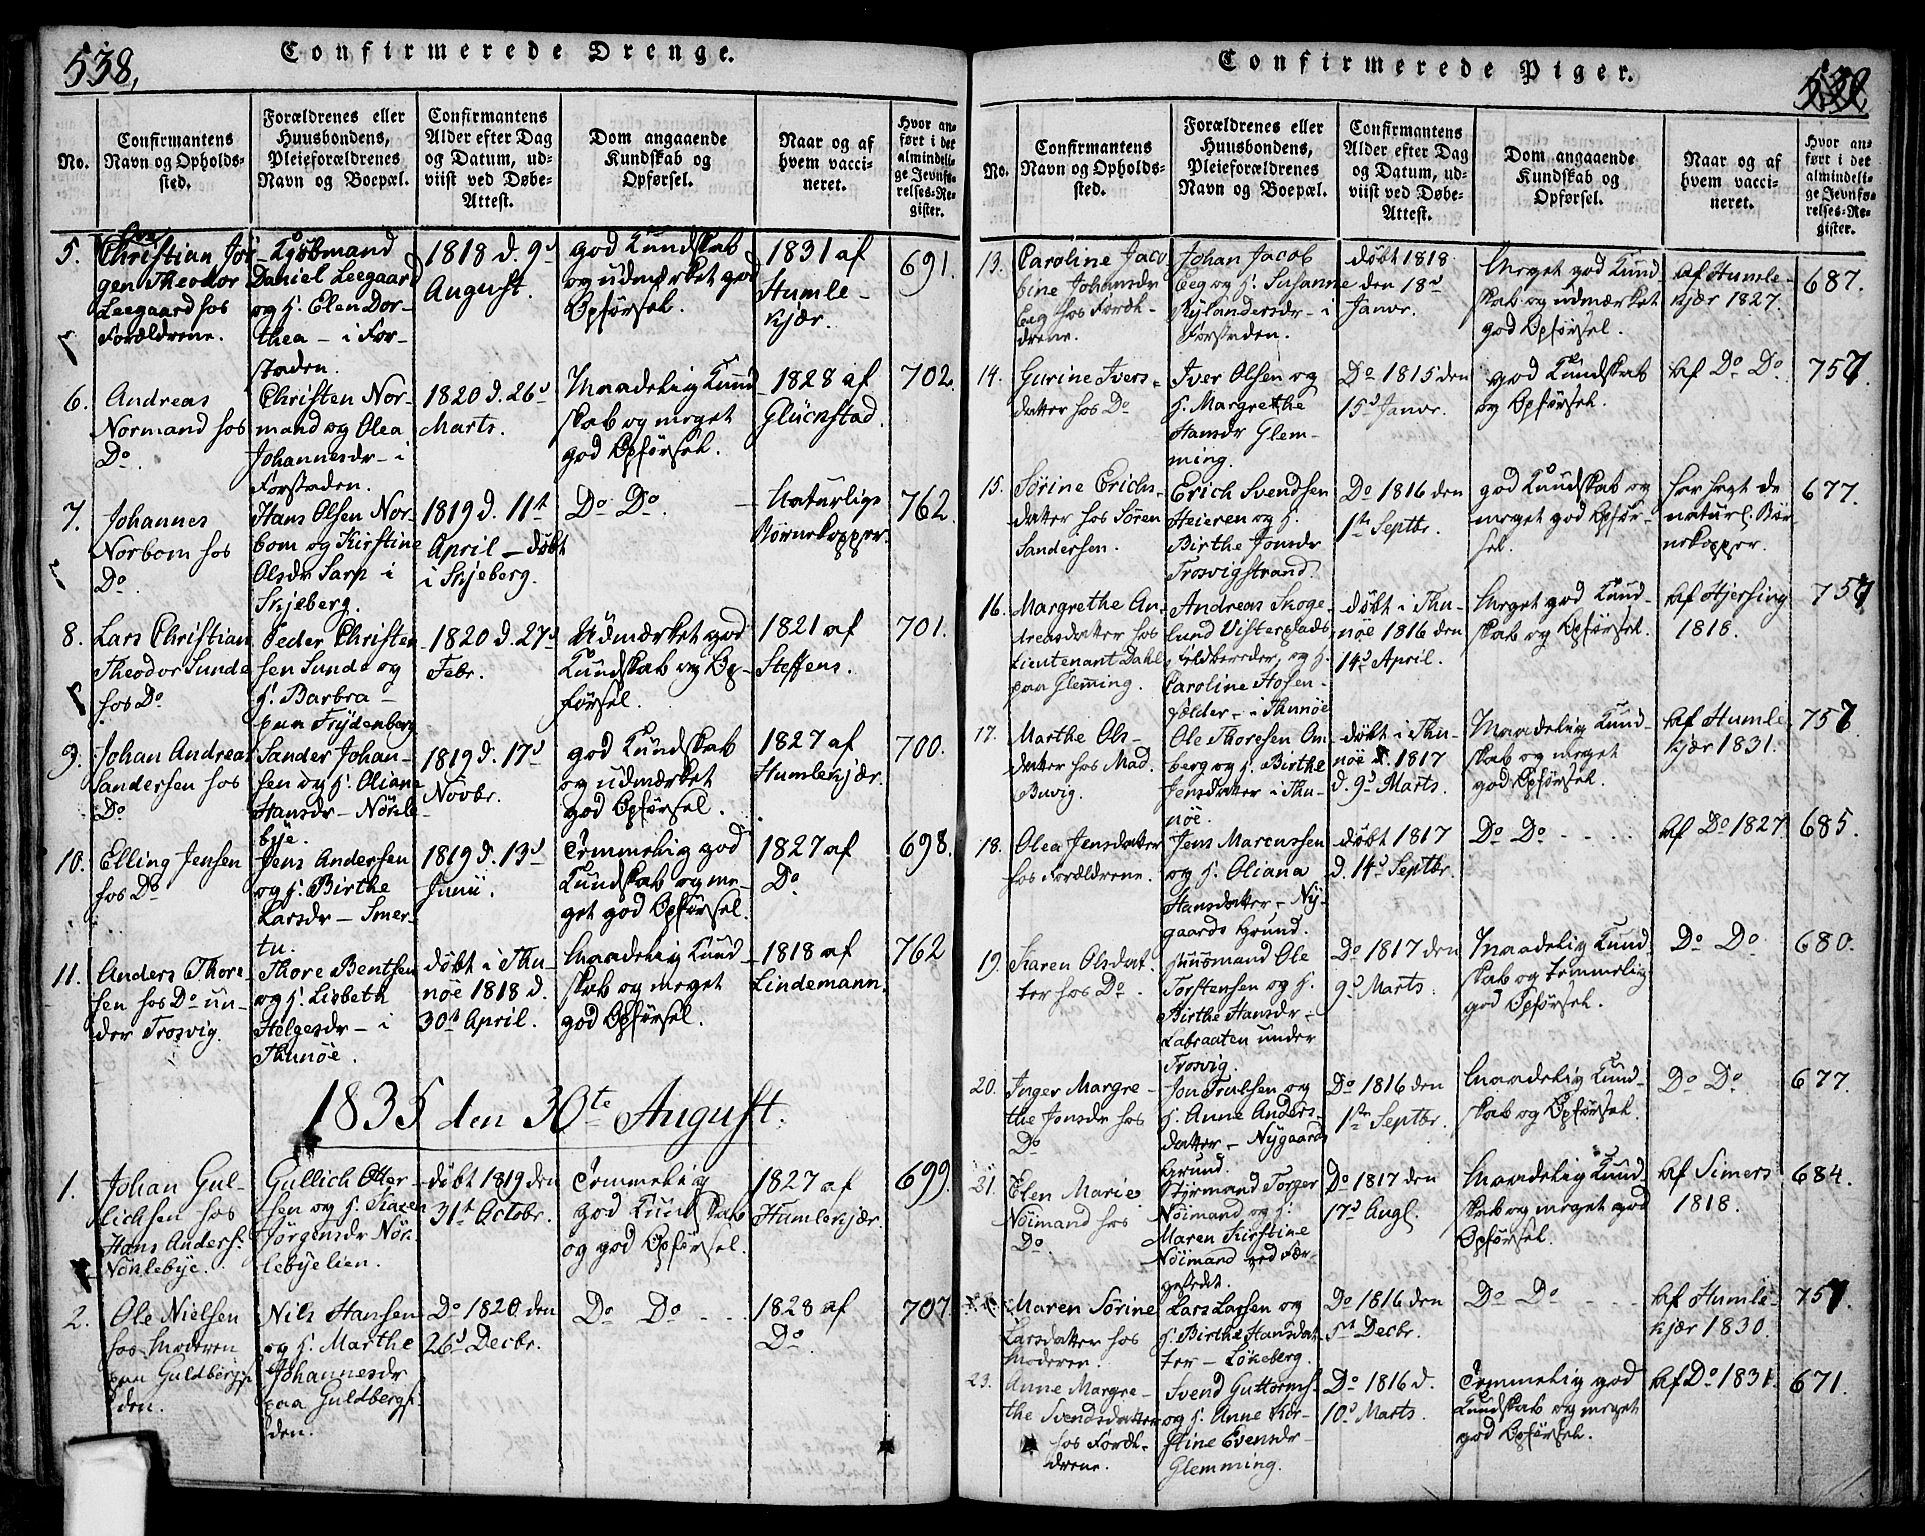 538,
Confirmerede Drenge.
No.
Confirmantens
Navn og Opholds-
sted.
Forældrenes eller
Huusbondens,
Pleieforældrenes
Navn og Boepæl.
Confirmantens
Alder efter Dag
og Datum, ud-
viist ved Døbe-
Attest.
Dom angaaende
Kundskab og
Opførsel.
Naar og af
hvem vacci-
neret.
Hvor an-
ført i det
almindeli-
ge Jevnfø-
relses-Re-
gister.
5.
Christian Jör
gen Theodor
Leegaard hos
Forældrene.
Kjöbmand
Daniel Leegaard
og H. Elen Dor-
thea - i For-
staden.
1818 d. 9d
August.
god Kundskab
og udmærket god
Opförsel.
1831 af
Humle-
kjær.
691.
6.
Andreas
Normand hos
Do.
Christen Nor-
mand og Olea
Johannesdr - i
Forstaden.
1820 d. 26d
Marts.
Maadelig Kund
skab og meget
god Opförsel.
1828 af
Glückstad.
702.
7.
Johannes
Norbom hos
Do.
Hans Olsen Nor-
bom og Kirstine
Olsdr Sarp i
Skjeberg.
1819 d. 11t
April - döbt
i Skjeberg.
Do Do.
Naturlige
Börnekopper.
762.
8.
Lars Christian
Theodor Sunde
hos Do
Peder Christen
sen Sunde og
H. Barbra -
paa Frydenberg
1820 d. 27d
Febr.
Udmærket god
Kundskab og Op-
försel.
1821 af
Steffens.
701.
9.
Johan Andreas
Sandersen hos
Do
Sander Johan-
sen og H. Oliane
Hansdr - Nökle-
bye.
1819 d. 17d
Novbr.
god Kundskab
og udmærket
god Opförsel.
1827 af
Humlekjær.
700.
10.
Elling Jensen
hos Do
Jens Andersen
og H. Birthe
Larsdr - Smer-
tu.
1819 d. 13d
Junii.
Temmelig god
Kundskab og me-
get god Opförsel.
1827 af
Do.
698.
11.
Anders Thore
sen hos Do un-
der Trosvig.
Thore Bentsen
og H. Lisbeth
Helgesdr - i
Thunöe.
döbt i Thu-
nöe 1818 d.
30t April.
Maadelig Kund-
skab og meget
god Opförsel.
1818 af
Lindemann.
762
1835 den 30te August.
1.
Johan Gul-
lichsen hos
Hans Anders.
Nöklebye.
Gullich Otter-
sen og H. Karen
Jörgensdr Nök
lebyelien.
döbt 1819 den
31t Octobr.
Temmelig
god Kundskab
og god Opförsel.
1827 af
Humlekjær.
699.
2.
Ole Nielsen
hos Moderen
paa Guldbergs
den.
Nils Hansen
og H. Marthe
Johannesdr
paa Guldbergs
den.
Do 1820 den
26d Decbr.
Do Do
1828 af
Do.
707.
Confirmerede Piger.
No.
Confirmantens
Navn og Opholds-
sted.
Forældrenes eller
Huusbondens,
Pleieforældrenes
Navn og Boepæl.
Confirmantens
Alder efter Dag
og Datum, ud-
viist ved Døbe-
Attest.
Dom angaaende
Kundskab og
Opførsel.
Naar og af
hvem vacci-
neret.
Hvor an-
ført i det
almindeli-
ge Jevnfø-
relses-Re-
gister.
13.
Caroline Jaco
bine Johansdr
Eeg hos Foræl-
drene.
Johan Jacob
Eeg og H. Susanne
Rylandersdr - i
Forstaden.
döbt 1818
den 18d
Janvr.
Meget god Kund-
skab og udmærket
god Opförsel.
Af Humle-
kjær 1827.
687.
14.
Gurine Ivers-
datter hos Do
Iver Olsen og
H. Margrethe
Hansdr Glem-
ming.
Do 1815 den
15d Janvr.
god Kundskab
og Opförsel.
Af Do Do.
757.
15.
Sörine Erichs-
datter hos Sören
Sandersen.
Erich Svendsen
Heieren og H.
Birthe Jonsdr
Trosvigstrand.
Do 1816 den
1te Septbr.
god Kundskab og
meget god Opför-
sel.
har havt de
naturl. Bör-
nekopper.
677.
16.
Margrethe An-
dreasdatter hos
Lieutenant Dahl
paa Glemming.
Andreas Skoge-
lund Visterplads
Feldbereder, og H.
Caroline Hosen-
fælder - i Thunöe
döbt i Thu-
nöe 1816 den
14d April.
Meget god Kund-
skab og Opförsel.
Af Hjersing
1818.
757
17.
Marthe Ols-
datter hos Mad.
Buvig.
Ole Thoresen Om
berg og H. Birthe
Jensdatter i Thu-
nöe.
döbt i Thu-
nöe 1817
d. 9d Marts.
Maadelig Kund-
skab og meget
god Opförsel.
Af Humle
kjær 1831.
757
18.
Olea Jensdatter
hos Forældrene.
Jens Marcussen
og H. Oliana
Hansdatter - Ny-
gaards Grund.
döbt 1817
d. 14d Septbr.
Do Do
Af Do 1827
685.
19.
Karen Olsdat-
ter hos Do.
Huusmand Ole
Torstensen og H.
Birthe Hansdr -
Labraaten under
Trosvig.
Do 1817 den
9d Marts.
Maadelig Kund-
skab og temmelig
god Opförsel.
Do Do.
680.
20.
Inger Margre-
the Jonsdr hos
Do
Jon Trulsen og
H. Anne Anders-
datter - Nygaards
Grund.
Do 1816 den
1te Septbr.
Maadelig Kund-
skab og Opförsel.
Do Do.
677
21.
Elen Marie
Nöimand hos
Do.
Styrmand Torger
Nöimand og H.
Maren Kirstine
Nöimand ved Fær-
gestedt.
Do 1817 den
17d Augl.
Maadelig Kund-
skab og meget god
Opförsel.
Af Simers
1818.
684.
Maren Sörine
Larsdatter hos
Moderen
Lars Larsen og
H. Birthe Hansdat
ter - Lökeberg.
Do 1816 den
5te Decbr.
Do Do
Af Humle-
kjær 1830.
757.
23.
Anne Margre-
the Svendsdatter
hos Foræl-
drene.
Svend Guttorms.
og H. Anne Kir-
stine Evensdr
Glemming.
Do 1816 d.
10d Marts.
Temmelig god
Kundskab og meget
god Opförsel.
Af Do 1831.
671.